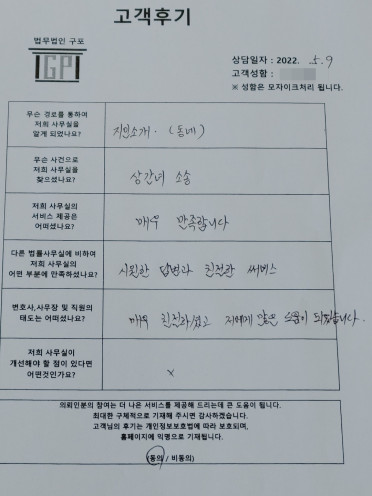 고객후기
법무법인 구포
IGPI
상담일자 : 2022. 5. 9
고객성함 :
※ 성함은 모자이크처리 됩니다.
무슨 경로를 통하여
저희 사무실을
알게 되었나요?
지인소개. (동네)
무슨 사건으로
저희 사무실을
찾으셨나요?
상간녀 소송
저희 사무실의
서비스 제공은
어떠셨나요?
매우 만족합니다
다른 법률사무실에 비하여
저희 사무실의
어떤 부분에 만족하셨나요?
시원한 답변과 친절한 써비스
변호사,사무장 및 직원의
태도는 어떠셨나요?
매우 친절하셨고 저에게 많은 도움이 되었습니다.
저희 사무실이
개선해야 할 점이 있다면
어떤것인가요?
x
의뢰인분의 참여는 더 나은 서비스를 제공해 드리는데 큰 도움이 됩니다.
최대한 구체적으로 기재해 주시면 감사하겠습니다.
고객님의 후기는 개인정보보호법에 따라 보호되며,
홈페이지에 익명으로 기재됩니다.
(동의 / 비동의)